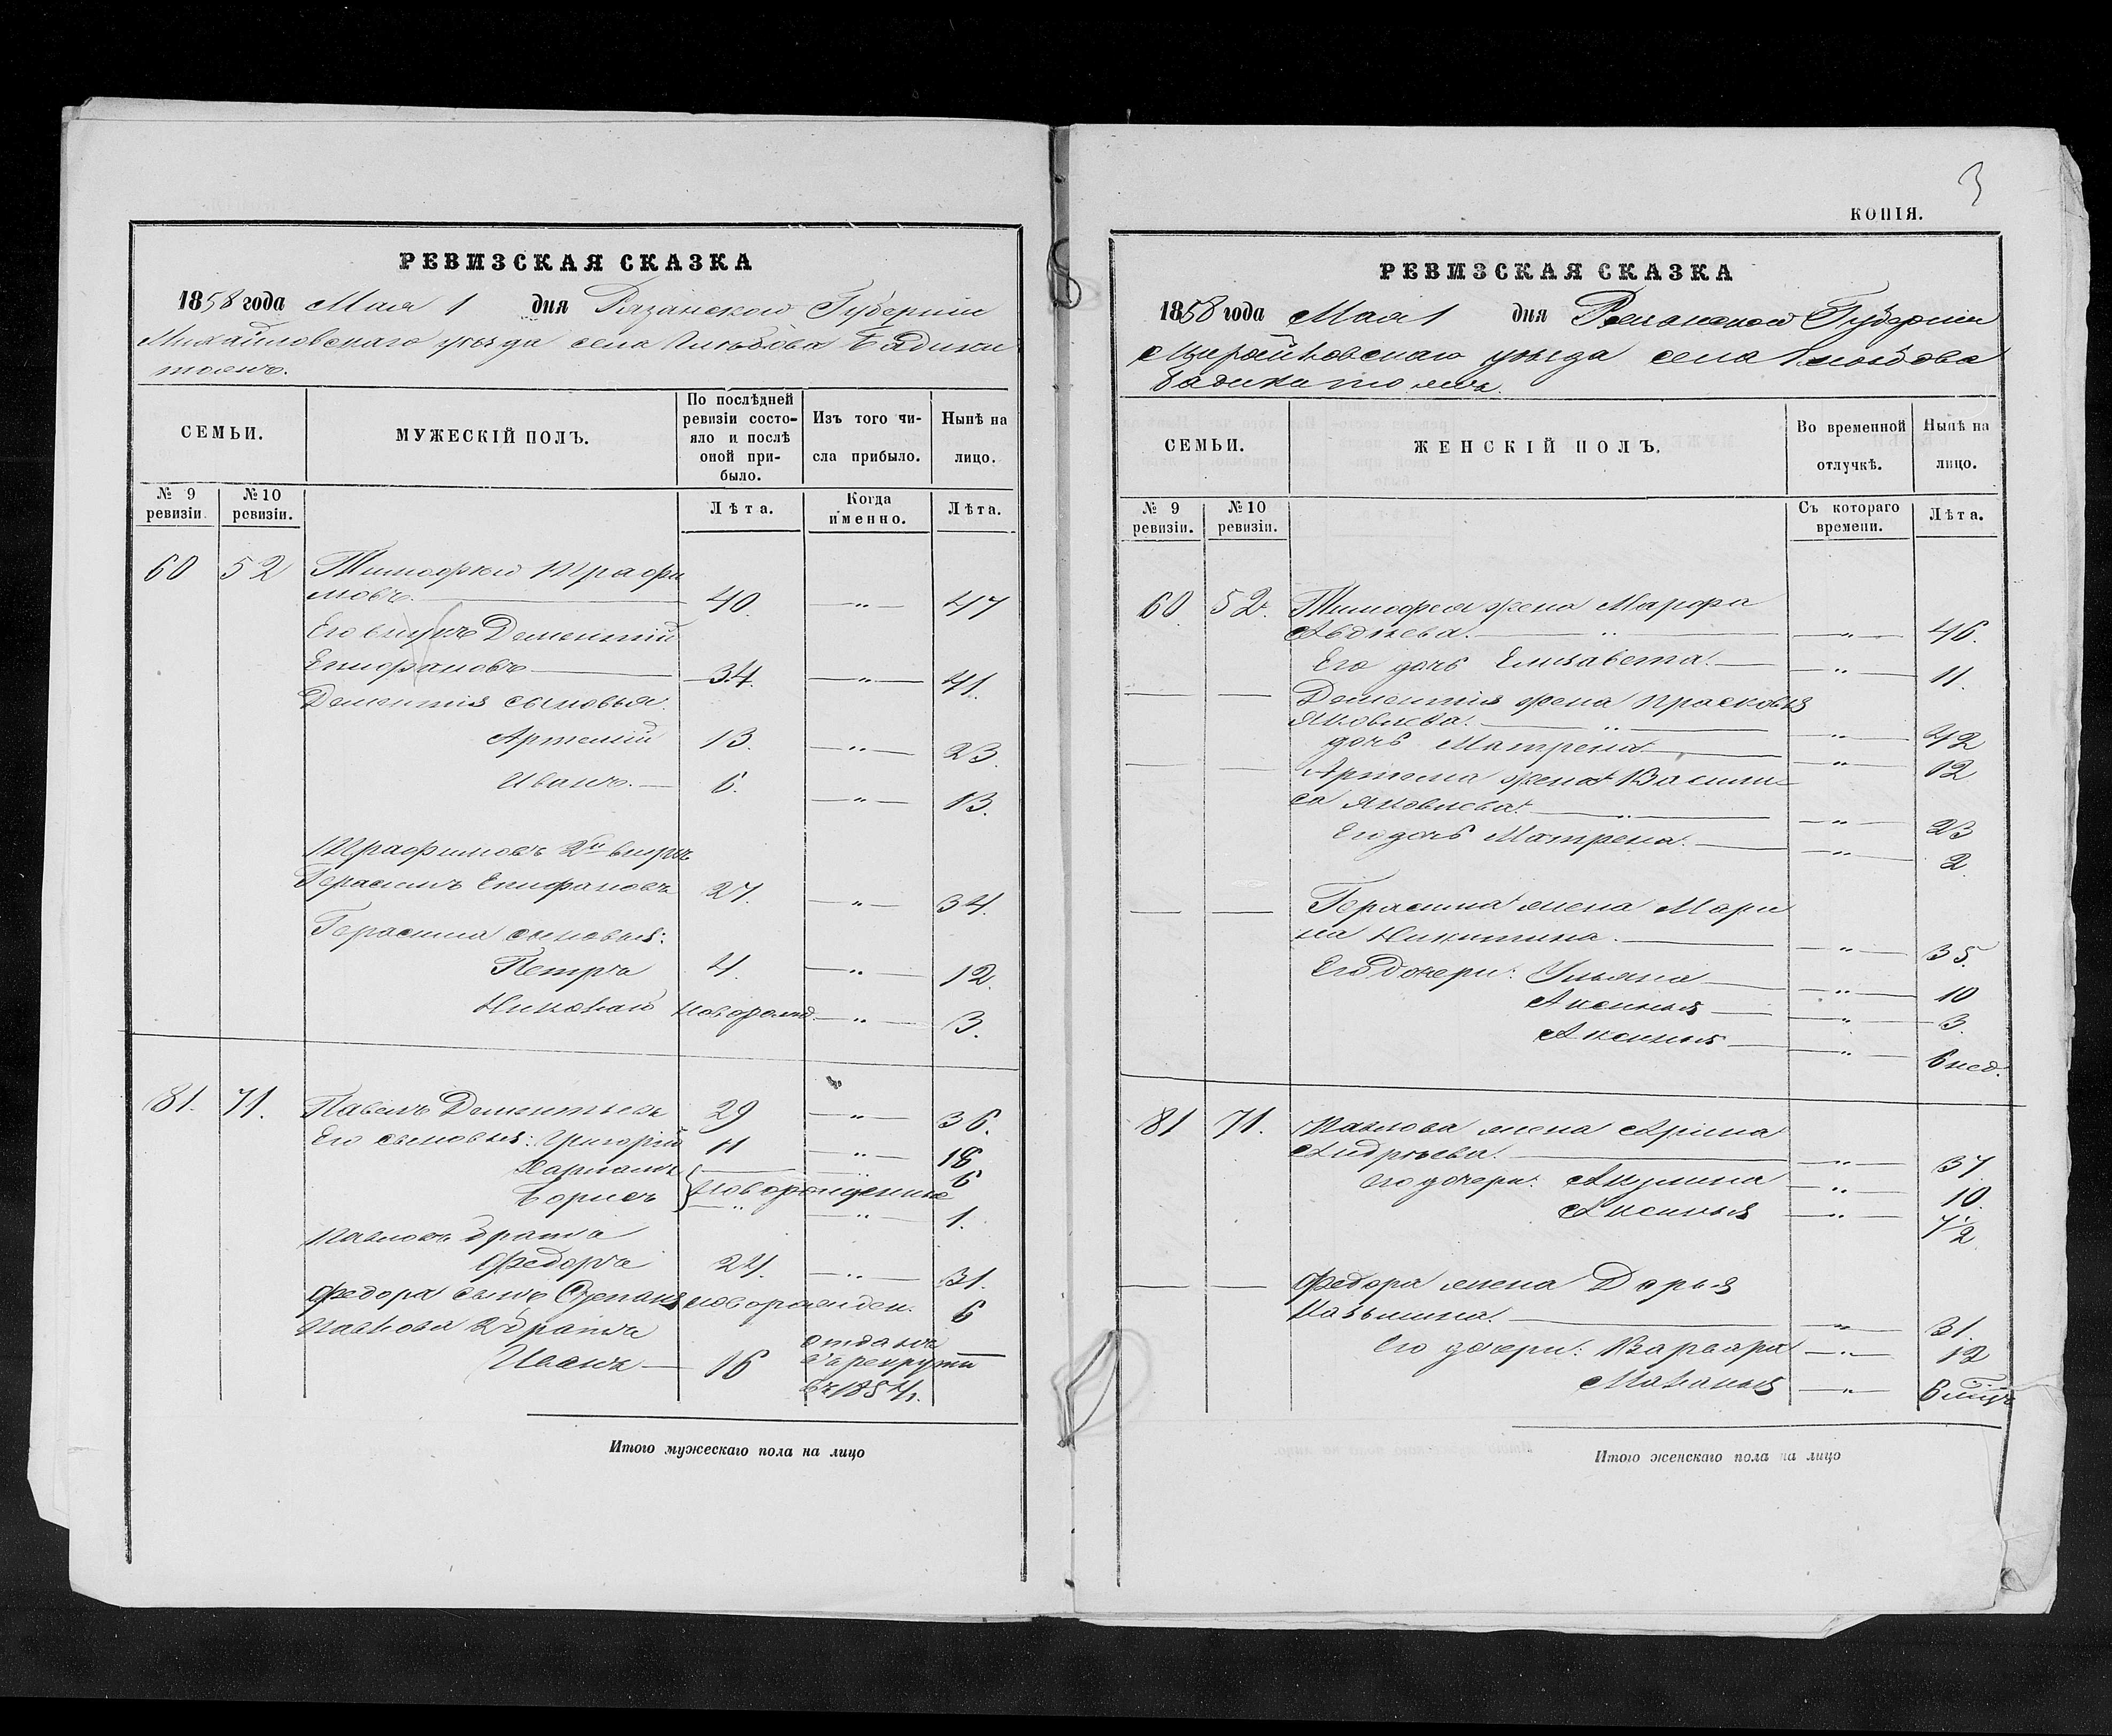 РЕВИЗСКАЯ СКАЗКА
1858 года Мая 1 дня Рязанской Губерніи
Михайловскаго уѣзда села
СЕМЬИ.
МУЖЕСКІЙ ПОЛЪ.
По послѣдней ревизіи состо-
яло и послѣ
оной при-
было.
Изъ того чи-
сла прибыло.
Нынѣ на
лицо.
№ 9 ревизіи.
№ 10 ревизіи.
Лѣта.
Когда именно.
Лѣта.
60 52 Тимофей Трофи
мовъ. 40. " 47
Его внукъ Дементій
Епифановъ 34. " 41.
Дементія сыновья.
Артемій 13. " 23.
Иванъ. 6. " 13.
Трофимовъ 2й внукъ
Герасимъ Епифановъ 27. " 34.
Герасима сыновья:
Петръ 4. " 12.
Николай новорожд. " 3.
81. 71. Павелъ Дементьевъ 29 " 36.
Его сыновья: Григорій 11 " 18
Харламъ " 6
Борисъ новорожденные " 1.
Павловъ братъ
Федоръ 24. " 31.
Федора сынъ Степанъ новорожден. 6
Павлова 2 братъ
Иванъ 16 отданъ
въ рекруты
въ 1854 г.
Итого мужескаго пола на лицо
3
КОПІЯ.
РЕВИЗСКАЯ СКАЗКА
1858 года Мая 1 дня Рязанской Губерніи
Михайловскаго уѣзда села
СЕМЬИ.
ЖЕНСКІЙ ПОЛЪ.
Во временной
отлучкѣ.
Нынѣ на
лицо.
№ 9 ревизіи.
№ 10 ревизіи.
Съ котораго
времени.
Лѣта.
60. 52. Тимофея жена Марфа
Авдѣева. " " 46.
Его дочь Елизавета. " 11.
Дементія жена Прасковья
Яковлева. " " 42
дочь Матрена " 12
Артема жена Васили-
са Яковлева. " " 23
Его дочь Матрена. " 2.
Герасима жена Мари
на Никитина. " 35.
Его дочери: Ульяна " 10
Аксинья " 3.
Аксинья " 6 нед.
81 71. Павлова жена Арина
Андрѣева. " 37.
его дочери: Акулина " 10.
Аксинья " 1/2
Федора жена Дарья
Казьмина. " 31.
Его дочери: Варвара " 12
Маланья " 6 мѣц
Итого женскаго пола на лицо